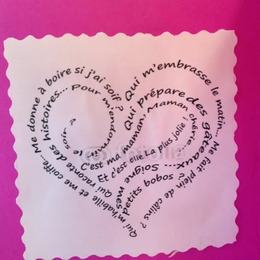 Qui m'embrasse le matin... Me fait plein de câlins ?
Qui m'habille et me coiffe... Me donne à boire si j'ai soif ?
Qui prépare des gâteaux... Soigne mes petits bobos ?
Qui raconte des histoires... Pour m'endormir
C'est ma maman ! Maman chérie
Et c'est elle La plus jolie !